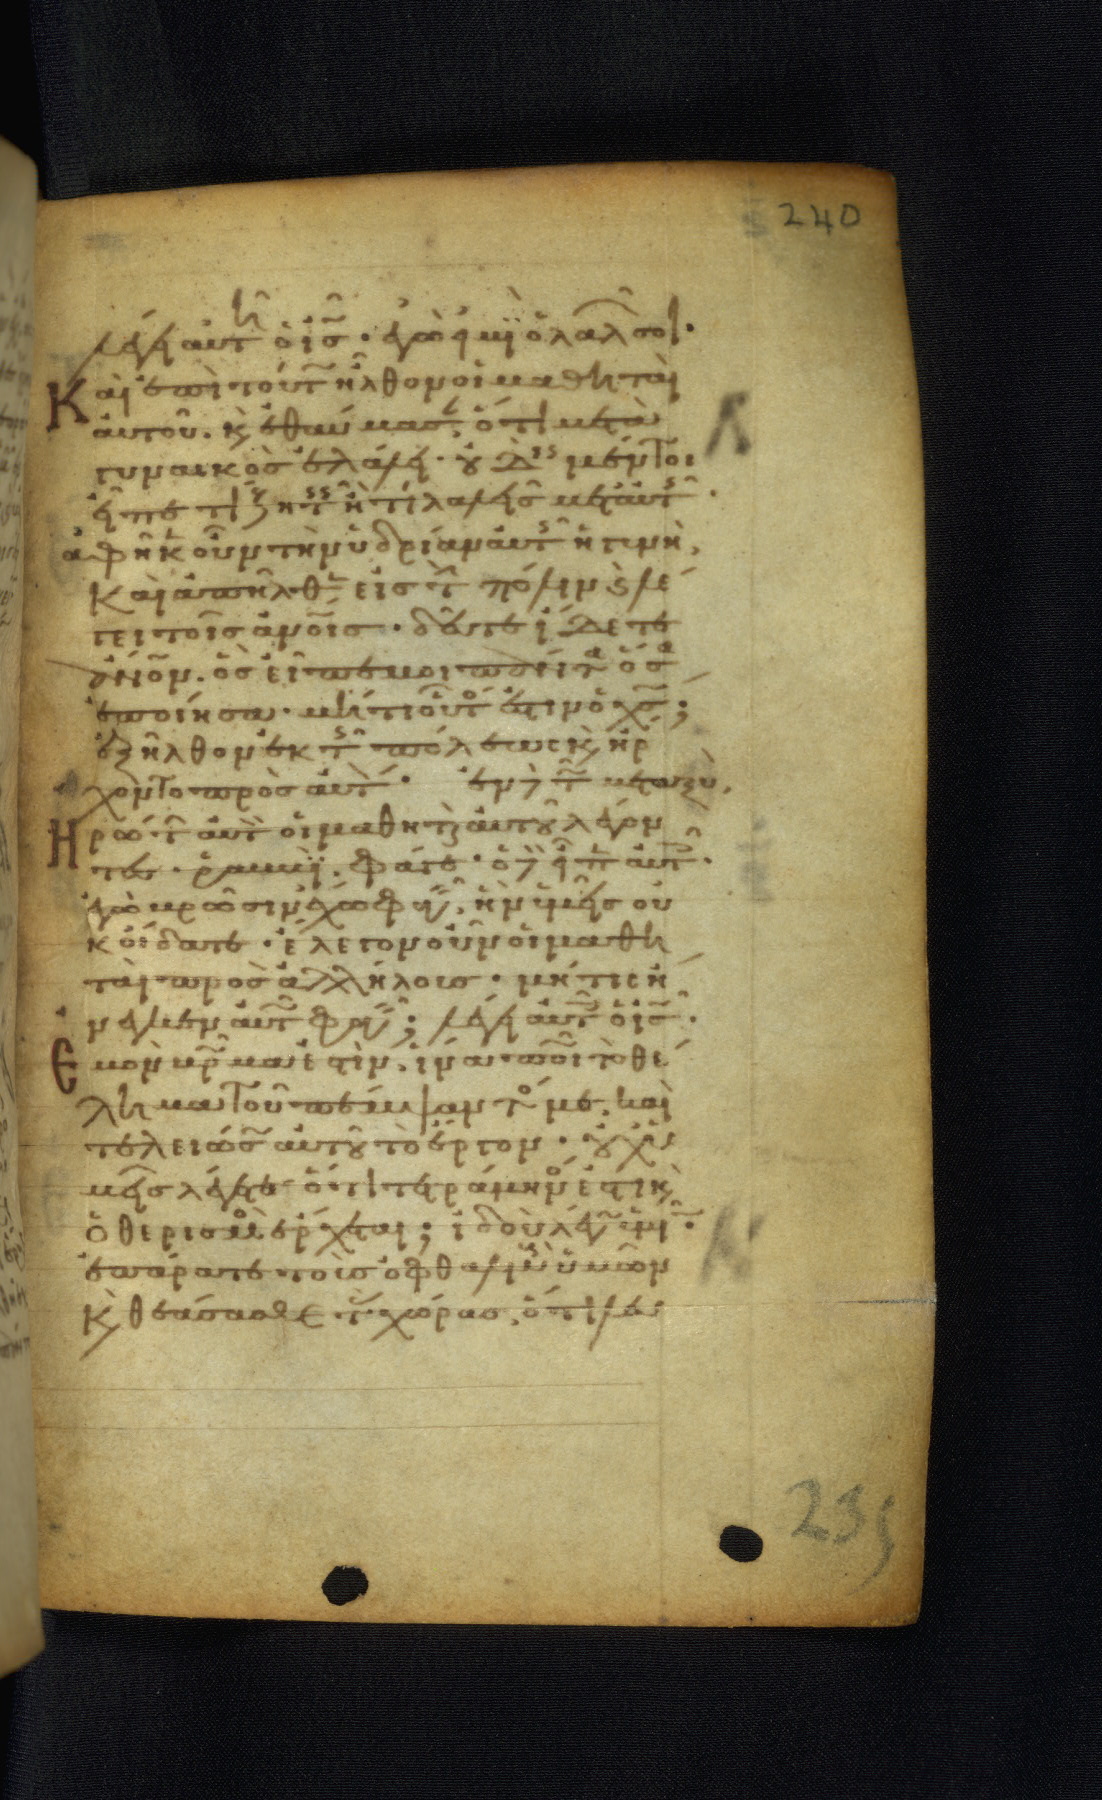 240
λέγει αὐτῆ ὁ ἰς̅. ἐγώ εἰμι ὁ λαλῶν σοι.
Καὶ ἐπὶ τούτω ἦλθον οἱ μαθηταὶ
αὐτοῦ. κ̀ ἐθαύμασαν, ὅτι μετὰ
γυναικὸς ἐλάλει. οὐδεὶς μέντοι
εἶπε τί ζητεῖς ἢ τί λαλεῖς μετ αὐτῆς.
ἀφῆκεν οὖν τὴν ὑδρίαν αὐτῆς ἡ γυνὴ,
Καὶ ἀπῆλθεν εἰς τὴν πόλιν κ̀ λέ
γει τοῖς ἀνοις. δεῦτε ἴδετε
ἀνον. ὃς εἶπε μοι πάντα ὅσα
ἐποίησα. μήτι οὗτός ἐστιν ὁ χς̅;
ἐξῆλθον ἐκ τῆς πόλεως κ̀ ἤρ
χοντο πρὸς αὐτόν. ἐν δὲ τῶ μεταξὺ,
Ηρώτων αὐτὸν οἱ μαθηταὶ αὐτοῦ λέγον
τες. ῥαββὶ φάγε. ὁ δὲ εἶπεν αὐτοῖς.
ἐγὼ βρῶσιν ἔχω φαγεῖν, ἣν ὑμεῖς οὐ
κ οἴδατε. ἔλεγον οὖν οἱ μαθη
ταὶ πρὸς ἀλλήλους. μήτις ἤ
νεγκεν αὐτῶ φαγεῖν; λέγει αὐτοῖς ὁ ἰς̅.
Ἐμὸν βρῶμα ἐστὶν, ἵνα ποιῶ τὸ θέ
λημα τοῦ πέμψαντός με, καὶ
τελειώσω αὐτοῦ τὸ ἔργον. οὐχ ὑ
μεῖς λέγετε ὅτι τετράμηνός ἐστι κ̀
ὁ θερισμὸς ἔρχεται; ἰδοὺ λέγω ὑμῖν.
ἐπάρατε τοὺς ὀφθαλμοὺς ὑμῶν
κ̀ θεάσασθε τὰς χώρας, ὅτι λευ
235